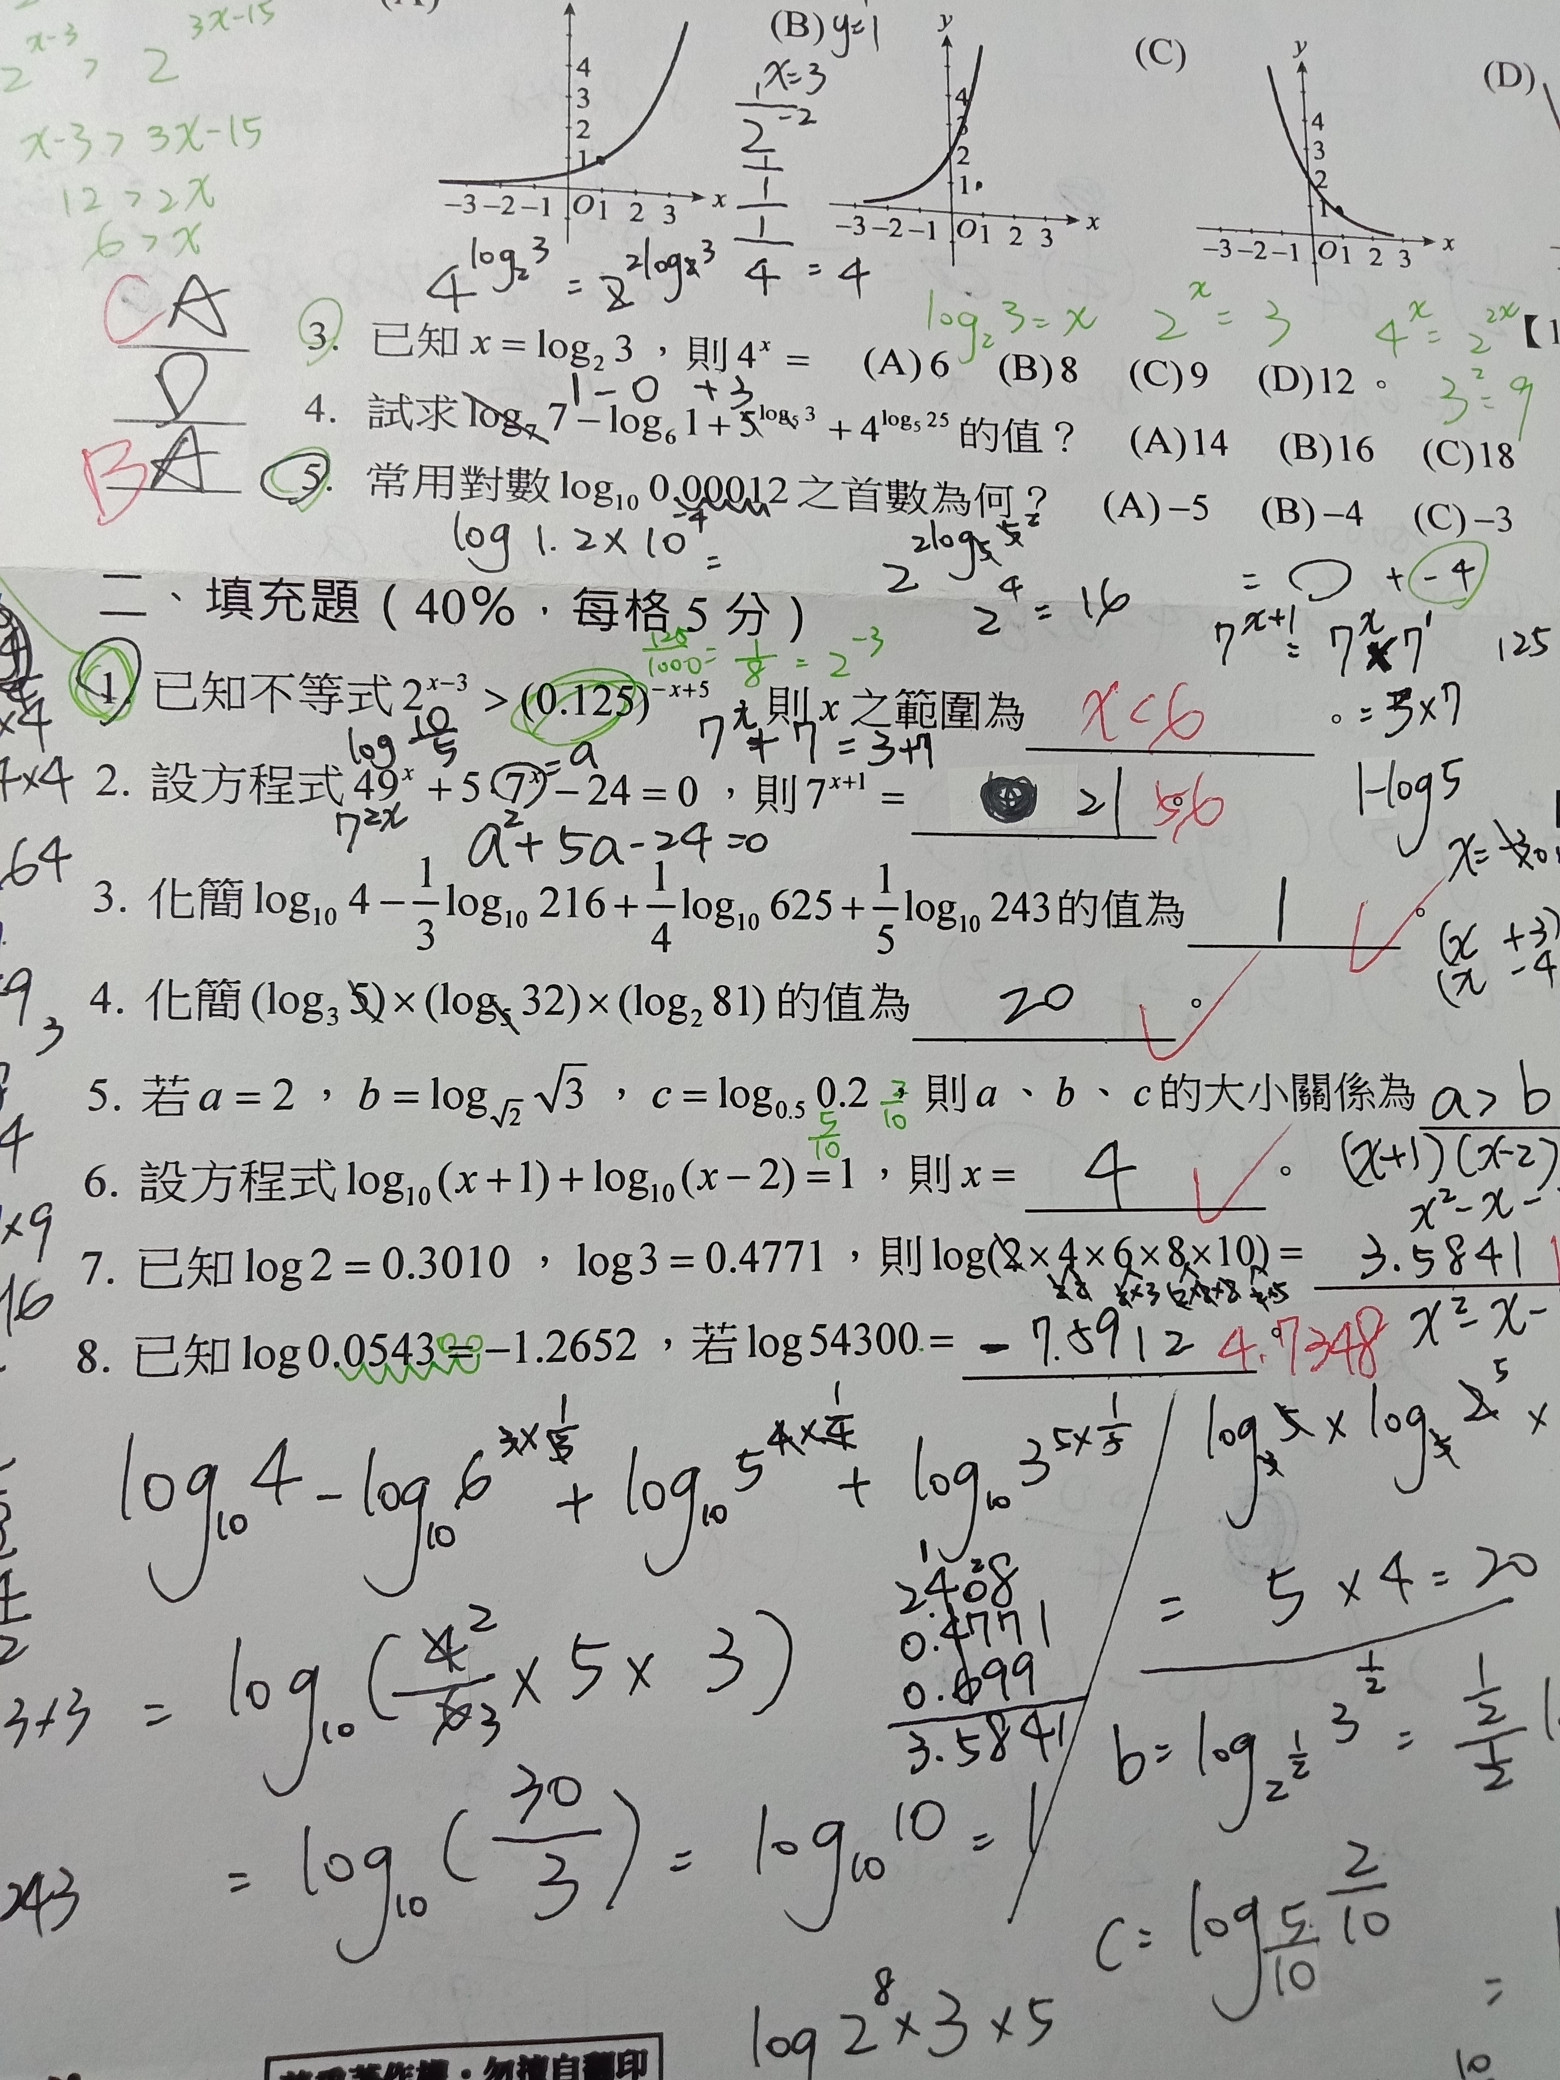 2^{x-3} > 2^{3x-15}
x-3 > 3x-15
12 > 2x
6 > x
(B) y=1
x=3
(C)
(D)
4^{log_2 3} = 2^{2log_2 3}
= 4
log_2 3 = x 2^x = 3 4^x = 2^{2x}
3^2 = 9
C A
3. 已知 x = log_2 3，則 4^x = (A)6 (B)8 (C)9 (D)12。
D
1 - 0 + 3
4. 試求 log_7 7 − log_6 1 + 5^{log_5 3} + 4^{log_5 25} 的值？ (A)14 (B)16 (C)18
B A
5. 常用對數 log_10 0.00012 之首數為何？ (A)−5 (B)−4 (C)−3
log 1.2×10^{-4} =
2^{2log_5 5^2}
2^4 = 16
= 0 + -4
二、填充題（40%，每格 5 分）
125/1000 = 1/8 = 2^{-3}
7^{x+1} = 7^x × 7^1
125
1. 已知不等式 2^{x−3} > (0.125)^{−x+5}，則 x 之範圍為 x<6 。
= 3×7
log 10/5
7^x + 7 = 3+7
2. 設方程式 49^x + 5(7^x) − 24 = 0，則 7^{x+1} = 21 56。
= a
7^{2x}
a^2+5a-24=0
1-log5
3. 化簡 log_10 4 − 1/3 log_10 216 + 1/4 log_10 625 + 1/5 log_10 243 的值為 1 。
(x +3)
(x -4
4. 化簡 (log_3 5)×(log_5 32)×(log_2 81) 的值為 20 。
5. 若 a = 2，b = log_{√2} √3，c = log_{0.5} 0.2，則 a、b、c 的大小關係為 a > b
5/10
6. 設方程式 log_10 (x+1) + log_10 (x−2) = 1，則 x = 4 。
(x+1)(x-2)
x^2-x-
7. 已知 log 2 = 0.3010，log 3 = 0.4771，則 log(2×4×6×8×10) = 3.5841
x^2-x-
8. 已知 log 0.0543 = −1.2652，若 log 54300 = -7.5912 4.7348。
log_10 4 - log_10 6^{3×1/3} + log_10 5^{4×1/4} + log_10 3^{5×1/5}
log_3 5 × log_5 2^5 ×
= 5×4 = 20
2.408
0.4771
0.699
3.5841
= log_10 (4^2/6 3 × 5 × 3)
b = log_{2^{1/2}} 3^{1/2} =
= log_10 (30/3) = log_10 10 = 1
c = log_{5/10} 2/10
=
log 2^8 × 3 × 5
10
3+3
243
64
×4
×9
16
著作權．勿擅自翻印